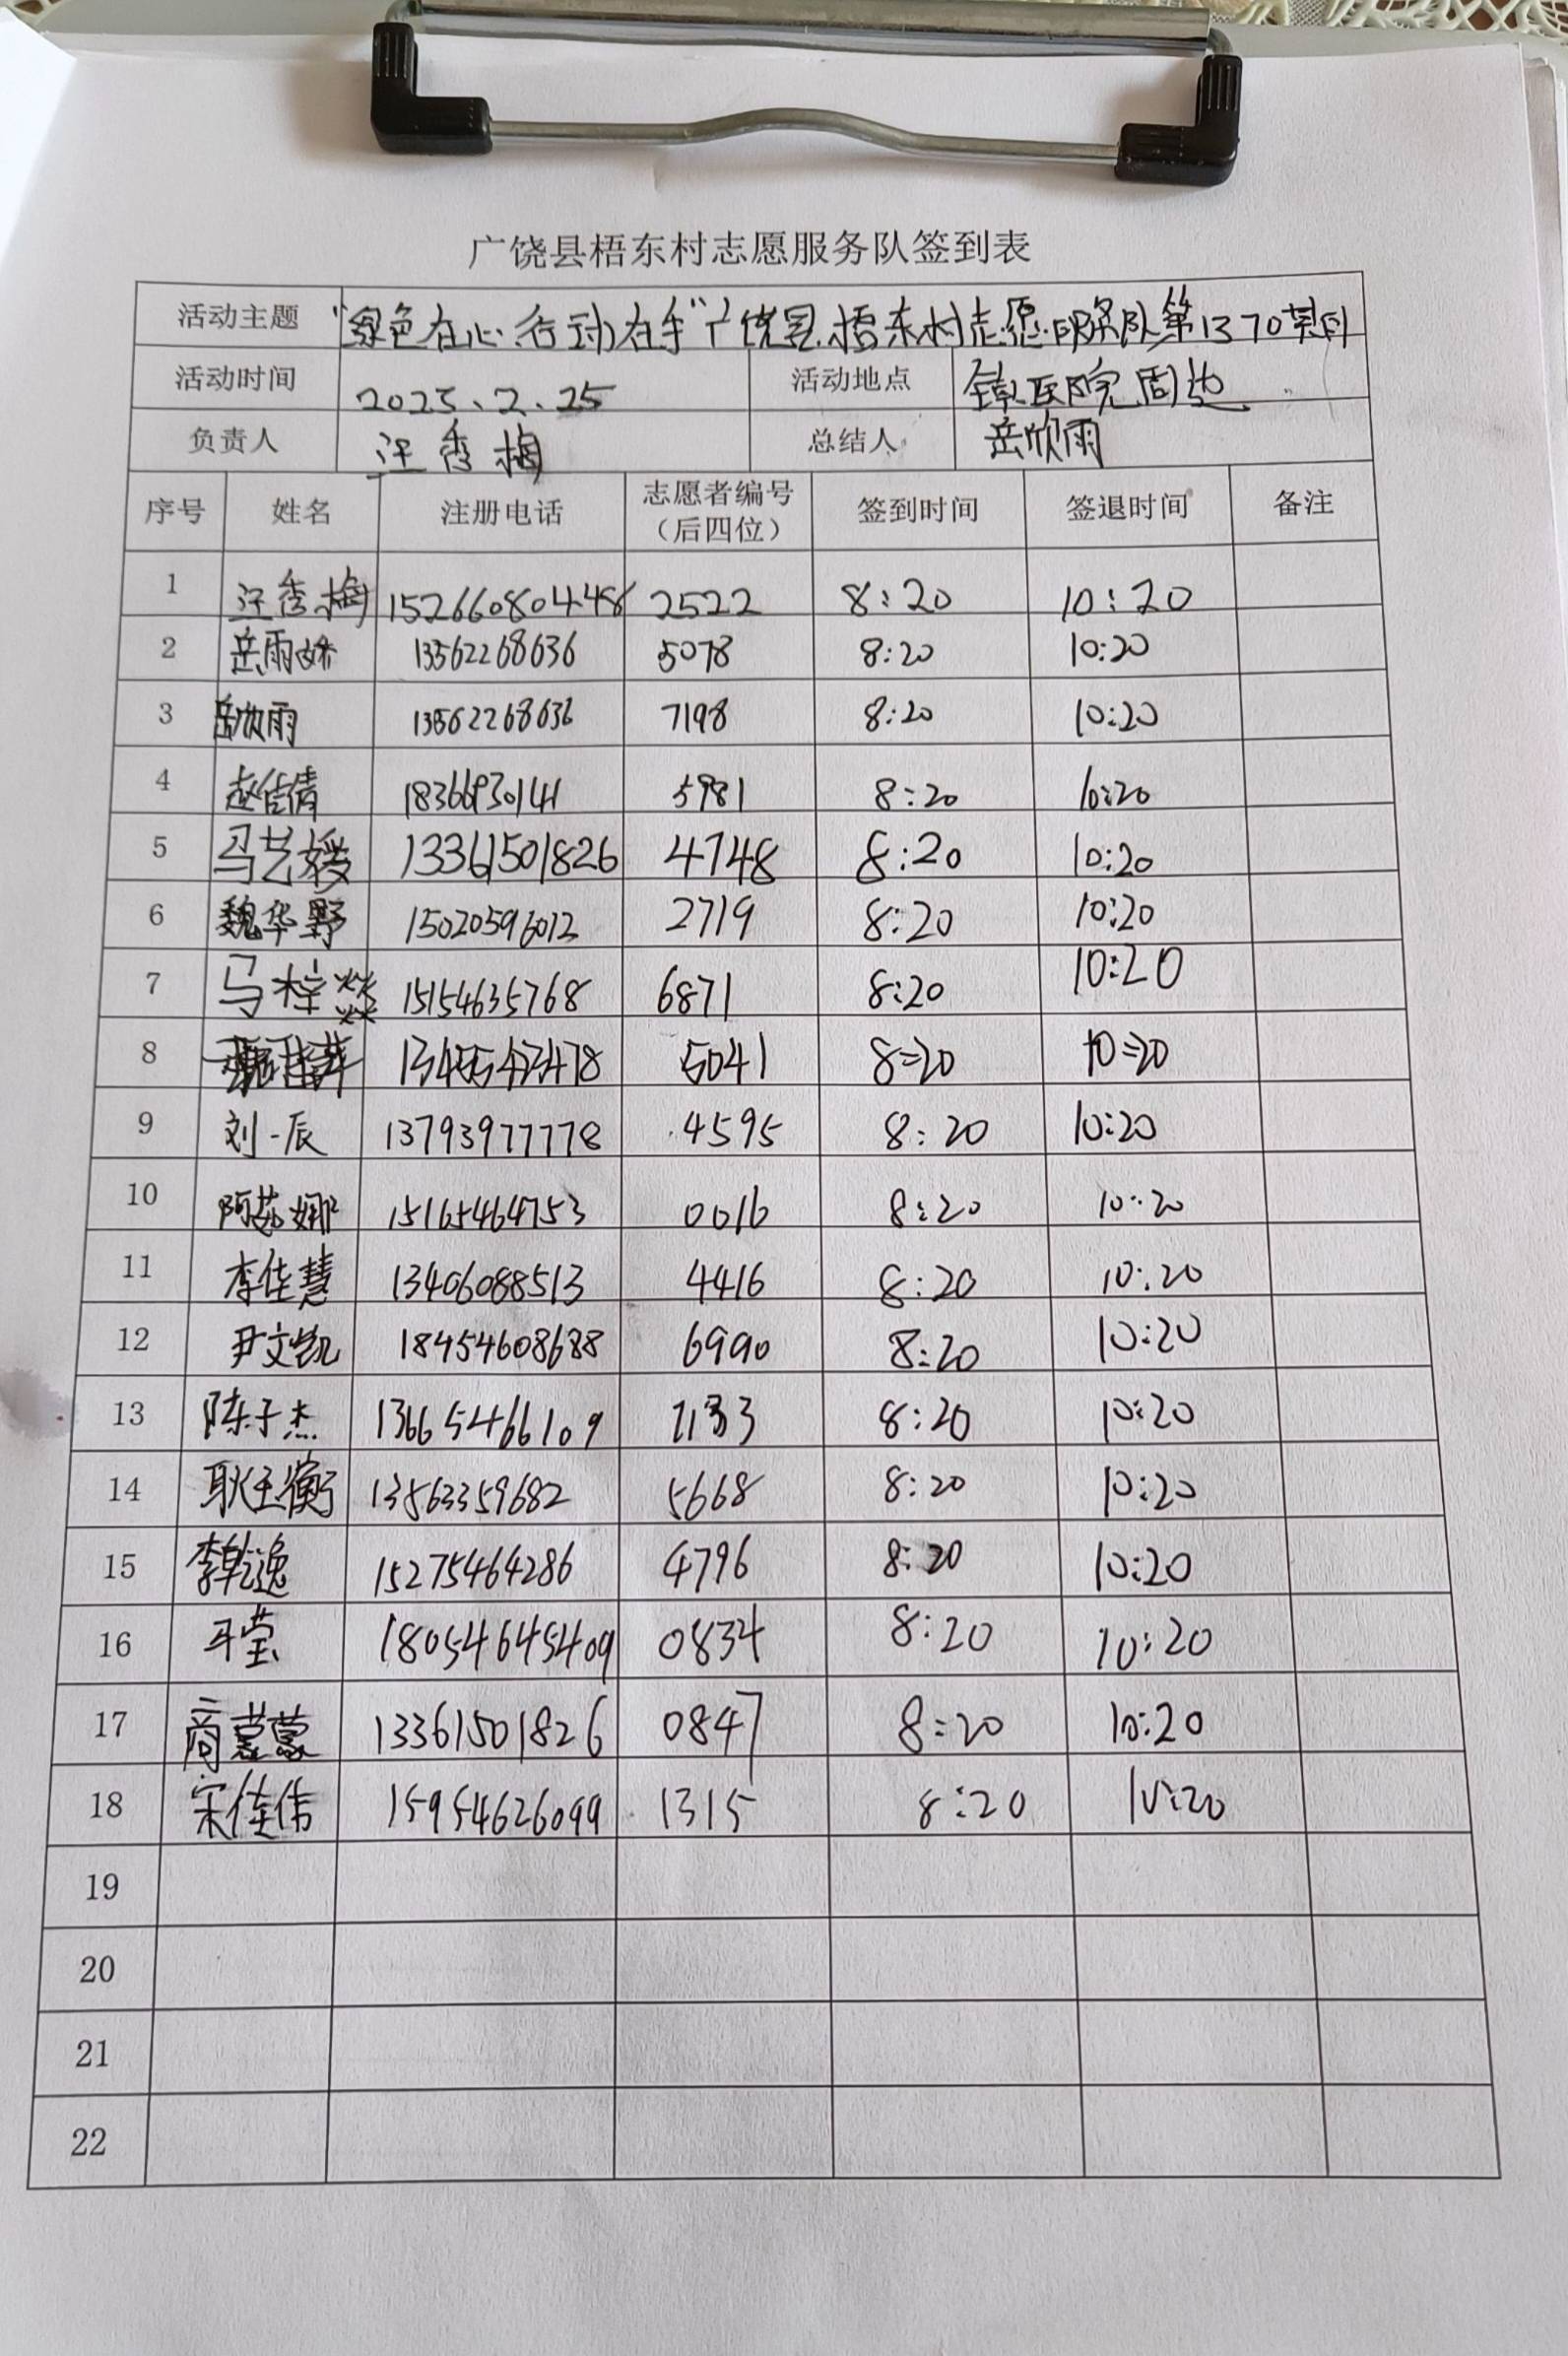 广饶县梧东村志愿服务队签到表
活动主题 "绿色在心,行动在手"广饶县梧东村志愿服务队第1370期
活动时间 2025、2、25 活动地点 镇医院周边
负责人 汪香梅 总结人 岳欣雨
序号 姓名 注册电话 志愿者编号（后四位） 签到时间 签退时间 备注
1 汪香梅 15266080448 2522 8:20 10:20
2 岳雨娇 13562268636 5078 8:20 10:20
3 岳欣雨 13562268636 7198 8:20 10:20
4 赵佳倩 18366930141 5981 8:20 10:20
5 马艺媛 13361501826 4748 8:20 10:20
6 魏华野 15020596012 2719 8:20 10:20
7 马梓燚 15154635768 6871 8:20 10:20
8 5041 8:20 10:20
9 刘一辰 13793977778 4595 8:20 10:20
10 阿茹娜 15165464753 0016 8:20 10:20
11 李佳慧 13406088513 4416 8:20 10:20
12 尹文凯 18454608688 6990 8:20 10:20
13 陈子杰 13665466109 8:20 10:20
14 耿玉衡 13563359682 5668 8:20 10:20
15 李乾逸 15275464286 4796 8:20 10:20
16 18054645409 0834 8:20 10:20
17 商蒙蒙 13361501826 0847 8:20 10:20
18 宋佳伟 15954626099 1315 8:20 10:20
19
20
21
22